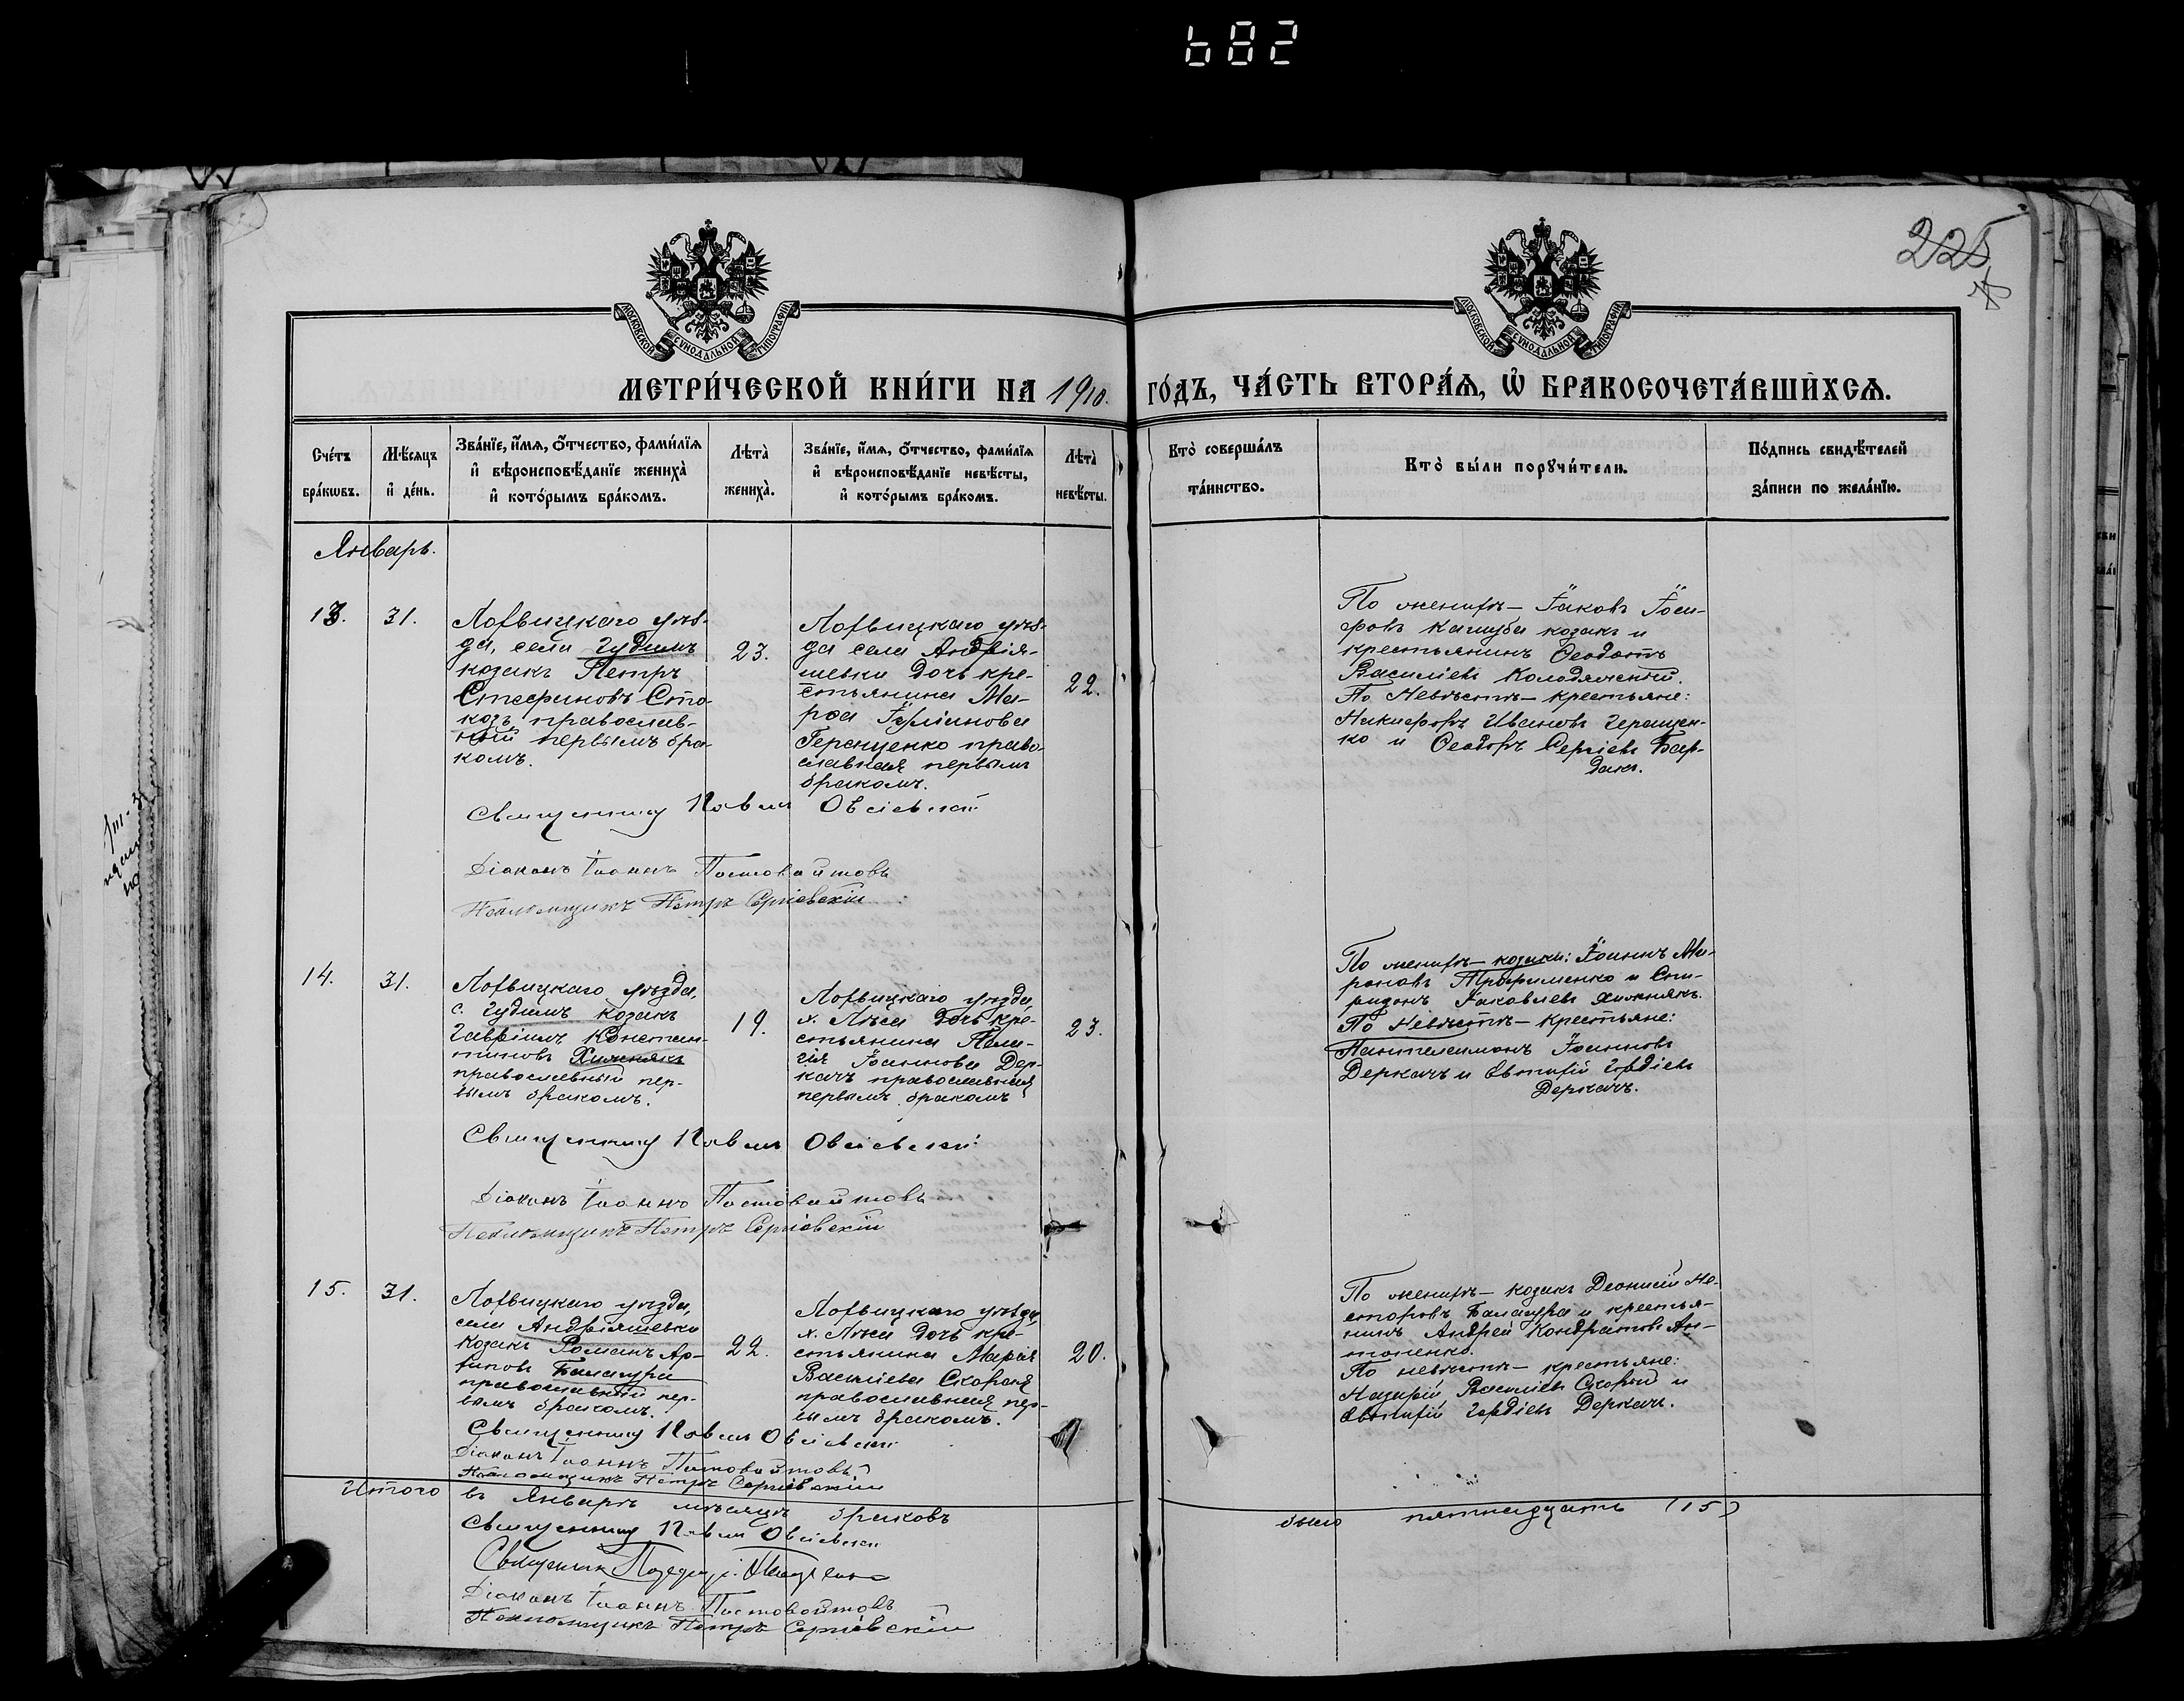 682
225
МОСКОВСКОЙ СѴНОДАЛЬНОЙ ТИПОГРАФІИ
МОСКОВСКОЙ СѴНОДАЛЬНОЙ ТИПОГРАФІИ
МЕТРИ́ЧЕСКОЙ КНИ́ГИ НА 1910. ГО́ДЪ, ЧА́СТЬ ВТОРА́Ѧ, Ѡ҆ БРАКОСОЧЕТА́ВШИХСѦ.
Сче́тъ бра́кѡвъ.
Мѣ́сѧцъ и҆ де́нь.
Зва́нїе, и҆́мѧ, ѻ҆́тчество, фами́лїѧ и҆ вѣроисповѣ́данїе жениха̀ и҆ кото́рымъ бра́комъ.
Лѣ́та̀ жениха̀.
Зва́нїе, и҆́мѧ, ѻ҆́тчество, фами́лїѧ и҆ вѣроисповѣ́данїе невѣ́сты, и҆ кото́рымъ бра́комъ.
Лѣ́та̀ невѣ́сты.
Кто̀ соверша́лъ та́инство.
Кто̀ бы́ли порꙋчи́тели.
По́дпись свидѣ́телей за́писи по жела́нїю.
Январь.
13.
31.
Лохвицкаго уѣз-
да, села Гудимъ
козакъ Петръ
Стефановъ Сто-
козъ, православ-
ный первымъ бра-
комъ.
23.
Лохвицкаго уѣз-
да села Андрія-
шевки дочь кре-
стьянина Ма-
рѳа Іуліанова
Геращенко право-
славная первым
бракомъ.
22.
По женихѣ — Іаковъ Іоси-
фовъ Кашуба козакъ и
крестьянинъ Ѳеодотъ
Василіевъ Колодяжный.
По Невѣстѣ — крестьяне:
Никифоръ Ивановъ Геращен-
ко и Ѳеодоръ Сергіевъ Бар-
дакъ.
Священникъ Павелъ Овсіевскій
Діаконъ Іоаннъ Постовойтовъ
Псаломщикъ Петръ Сергіевскій
14.
31.
Лохвицкаго уѣзда,
с. Гудимъ козакъ
Гавріилъ Констан-
тиновъ Хижнякъ
православный пер-
вымъ бракомъ.
19.
Лохвицкаго уѣзда,
х. Лѣса дочь кре-
стьянина Пела-
гія Іоаннова Дер-
качъ православная
первымъ бракомъ
23.
По женихѣ — козаки: Іоаннъ Ми-
роновъ Трофименко и Спи-
ридонъ Іаковлевъ Хижнякъ.
По Невѣстѣ — крестьяне:
Пантелеимонъ Іоанновъ
Деркачъ и Евтихій Гордіевъ
Деркачъ.
Священникъ Павелъ Овсіевскій
Діаконъ Іоаннъ Постовойтовъ
Псаломщикъ Петръ Сергіевскій
15.
31.
Лохвицкаго уѣзда,
села Андріяшевки
козакъ Романъ Ар-
хиповъ Балацура
православный пер-
вымъ бракомъ.
22.
Лохвицкаго уѣзда,
х. Лѣса дочь кре-
стьянина Марія
Василіева Скорая
православная пер-
вымъ бракомъ.
20.
По женихѣ — козакъ Діонисій Не-
сторовъ Балацура и крестья-
нинъ Андрей Кондратовъ Ан-
тоненко.
По невѣстѣ — крестьяне:
Назарій Василіевъ Скорый и
Евтихій Гордіевъ Деркачъ.
Священникъ Павелъ Овсіевскій
Діаконъ Іоаннъ Постовойтовъ
Псаломщикъ Петръ Сергіевскій
Итого въ Январѣ мѣсяцѣ браковъ было пятнадцать (15)
Священникъ Павелъ Овсіевскій
Священник
Діаконъ Іоаннъ Постовойтовъ
Псаломщикъ Петръ Сергіевскій